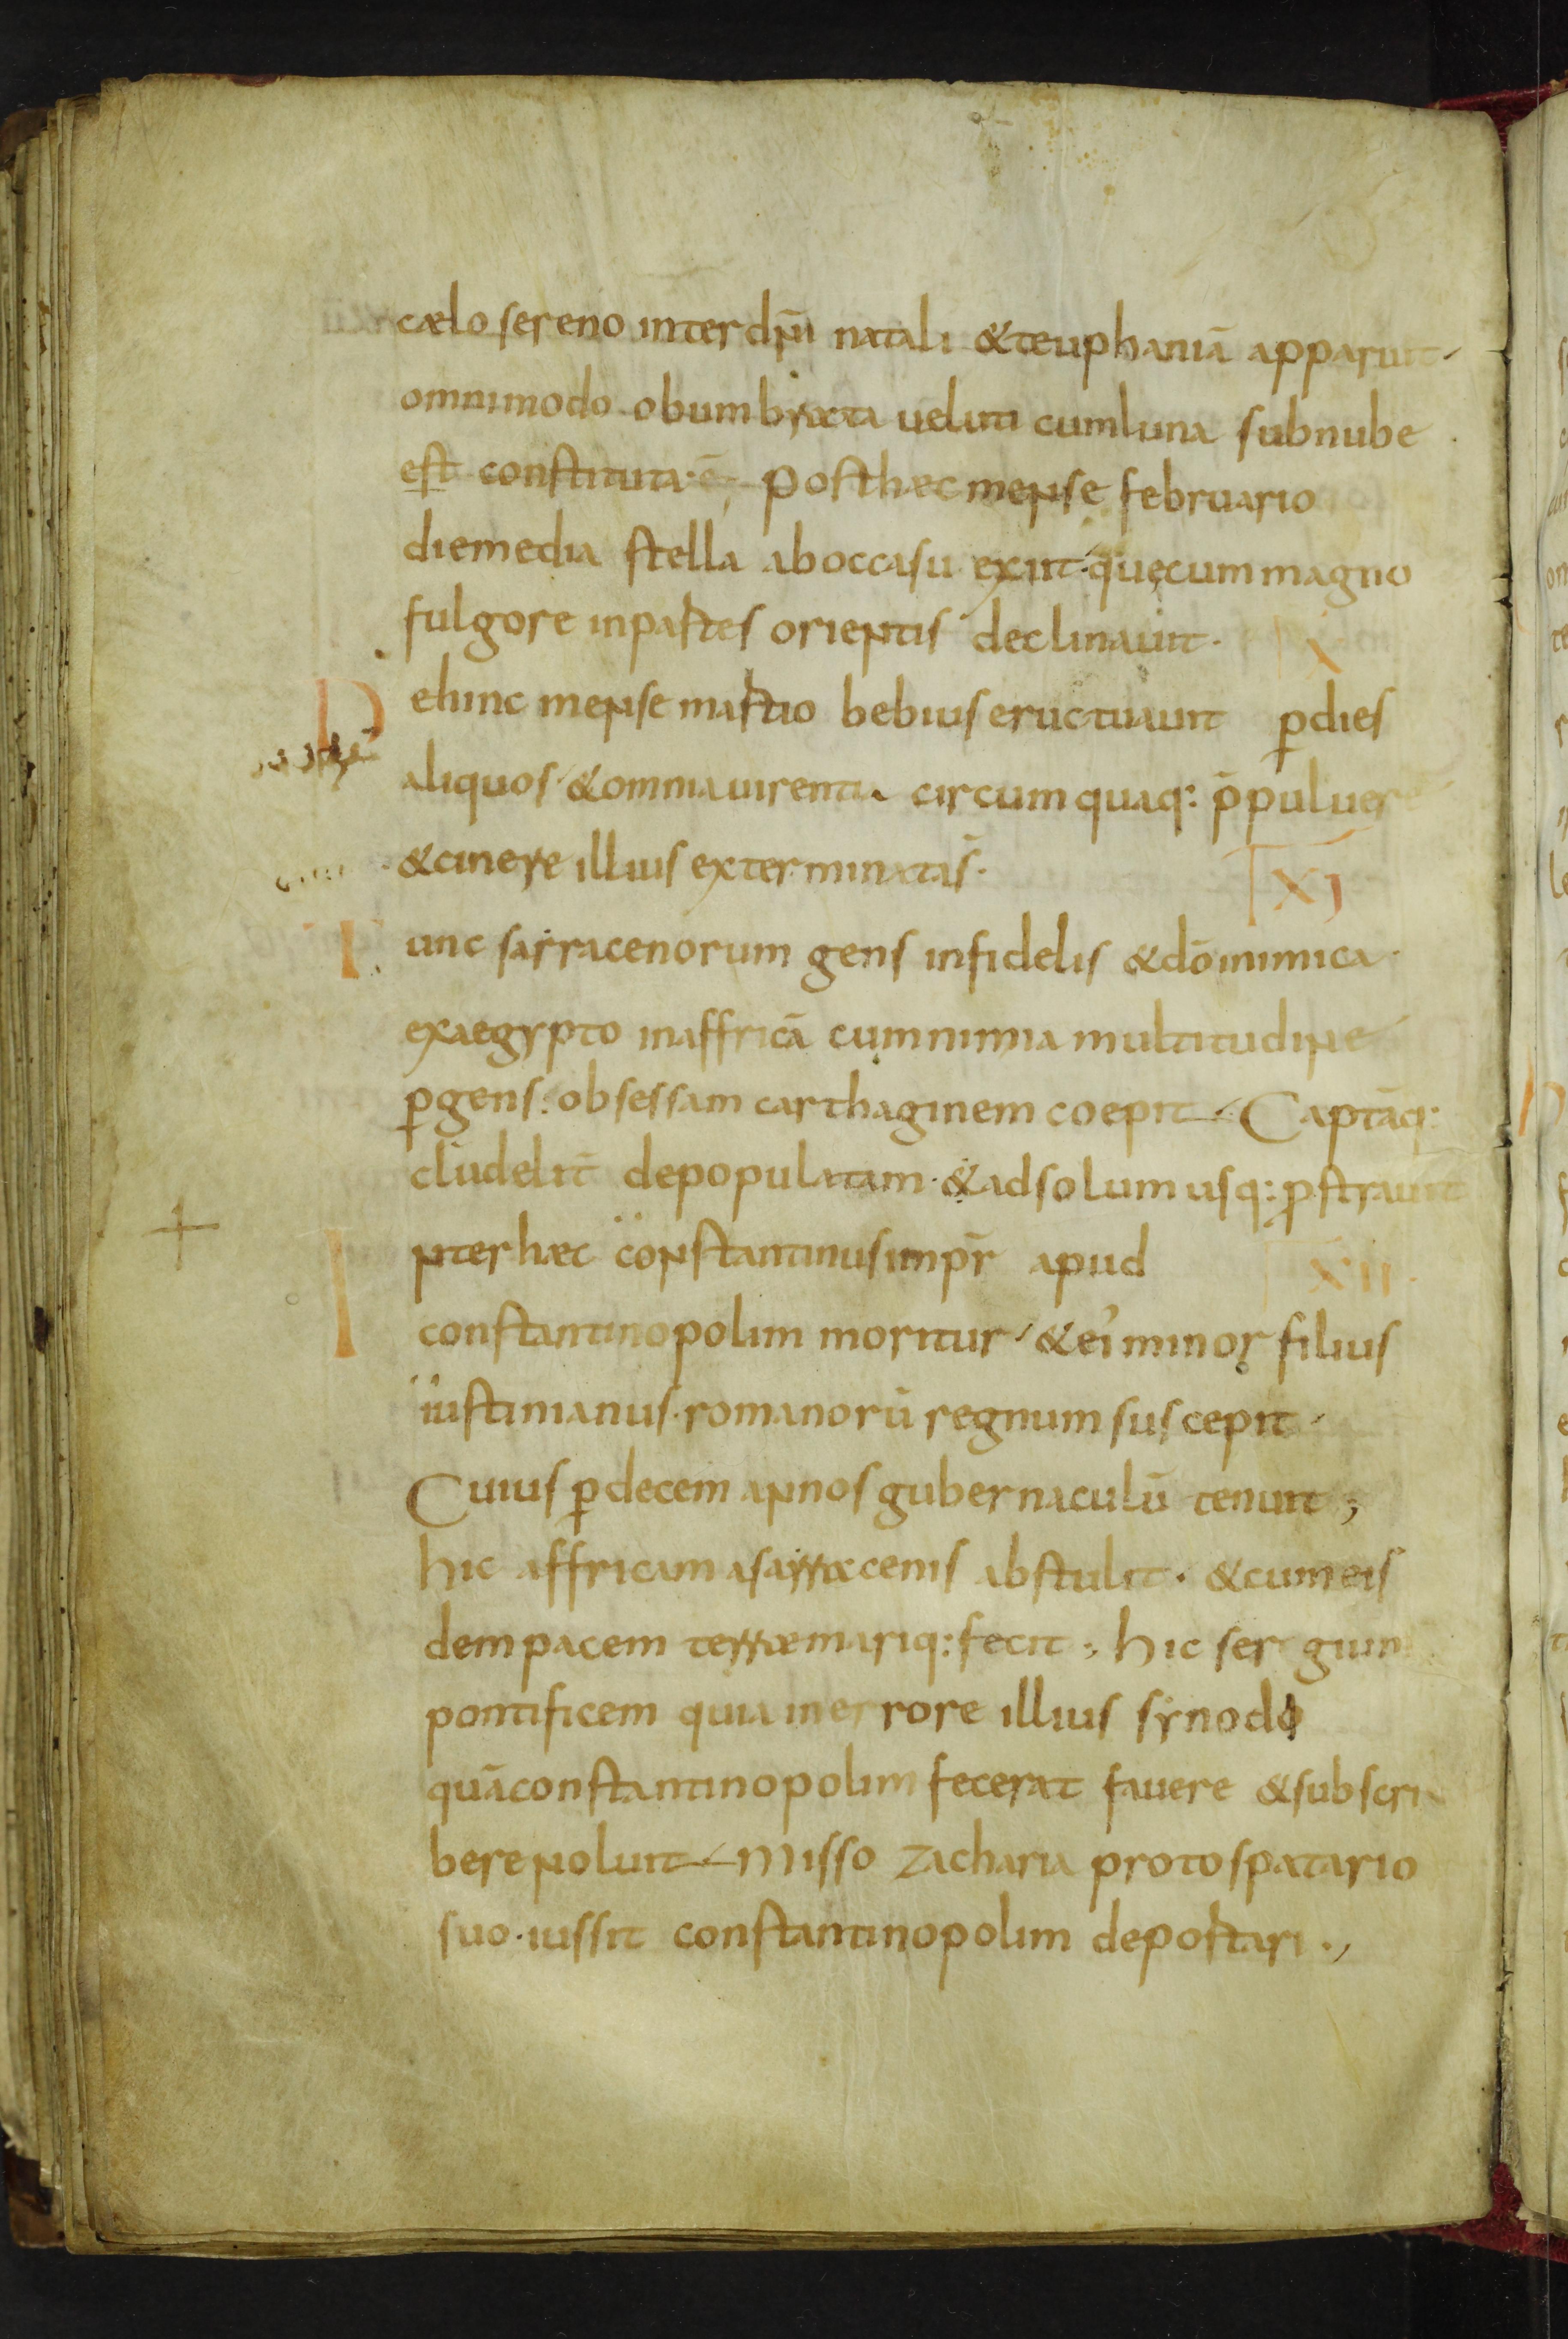 cælo sereno inter dn̄i natali & teuphaniā apparuit
omnimodo obumbrata veluti cum luna sub nube
est constituta· Post hæc mense februario
die media stella ab occasu exiit· quę cum magno
fulgore in partes orientis declinavit· X
Dehinc mense martio bebius eructuavit ꝑ dies
aliquos· & omnia virentia circumquaq: p̄ pulvere
& cinere illius exterminata s̄· XI
Tunc sarracenorum gens infidelis & dō inimica·
ex aegypto in affricā cum nimia multitudine
ꝑgens: obsessam carthaginem coepit· Captāq:
cludelit̄ depopulatam· & ad solum usq: ꝓstravit
Inter hæc constantinus impr̄ apud XII·
constantinopolim moritur· & ei' minor filius
iustinianus· romanorū regnum suscepit·
Cuius ꝑ decem annos gubernaculū tenuit;
hic affricam a sarracenis abstulit· & cum eis
dem pacem terra mariq: fecit; hic sergium
pontificem quia in errore illius synodo
quā constantinopolim fecerat favere & subscri
bere noluit· Misso zacharia protospatario
suo· iussit constantinopolim deportari·,